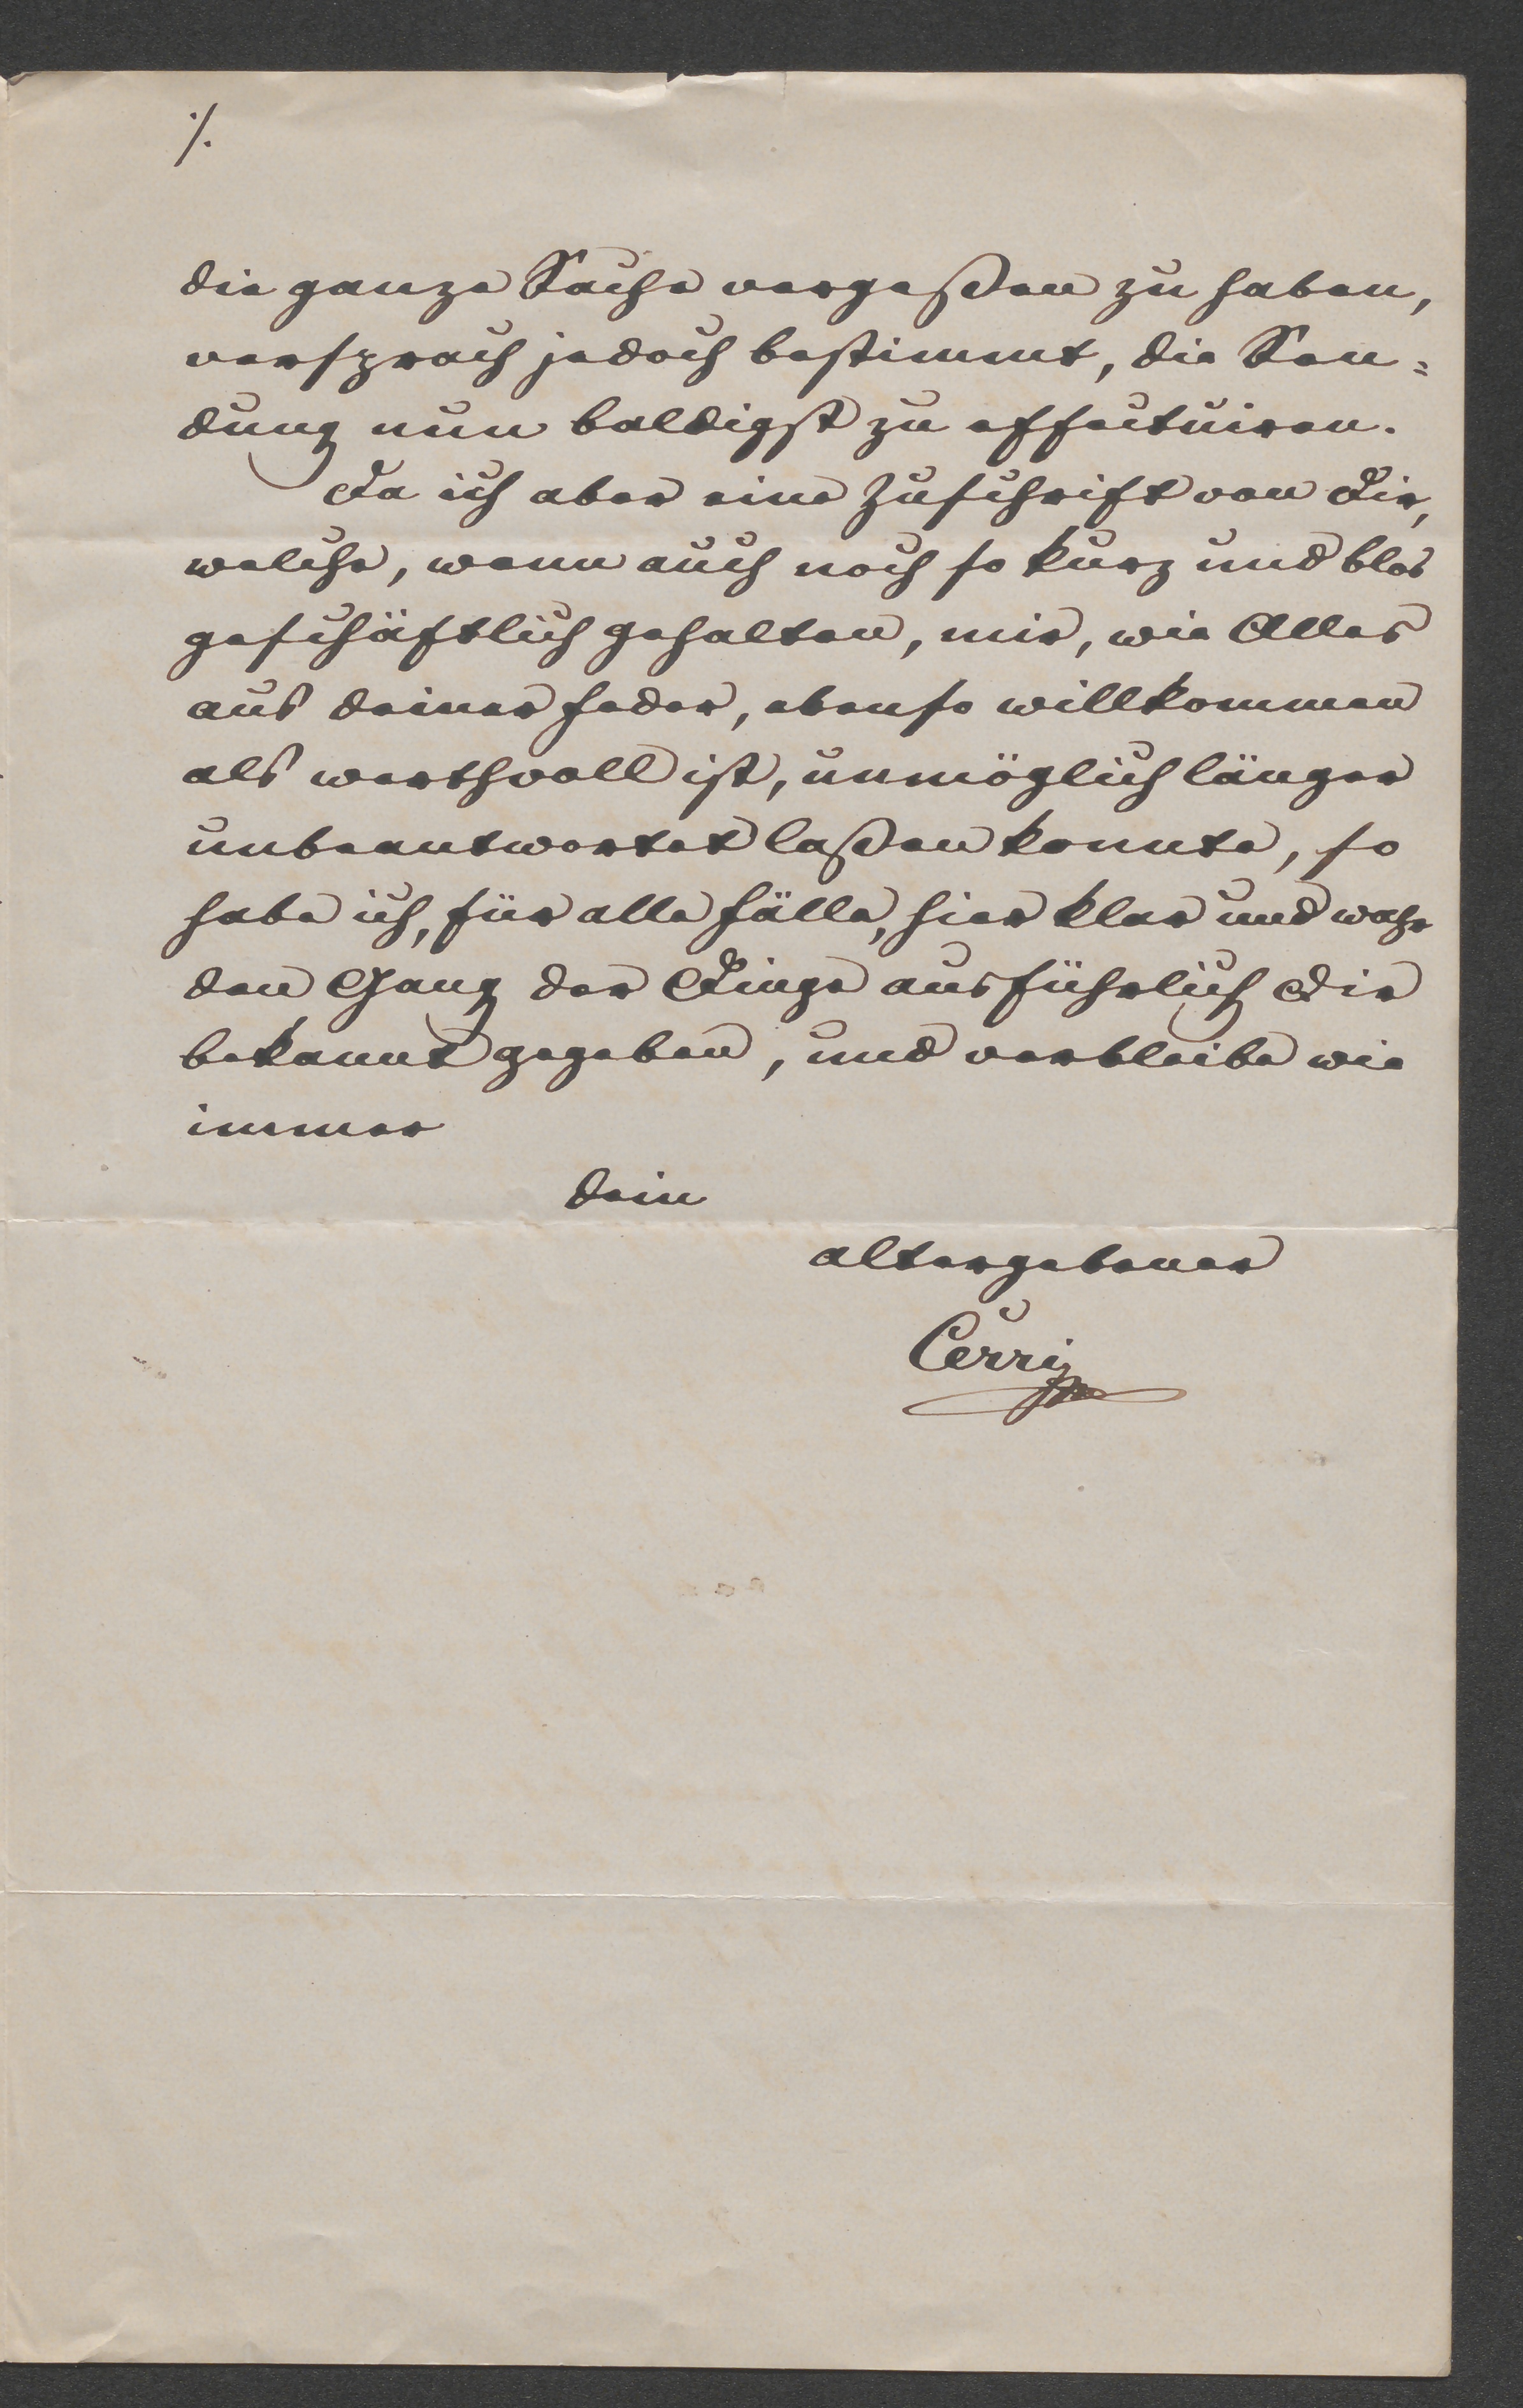 ./.
die ganze Sache vergeßen zu haben,
versprach jedoch bestimmt, die Sen=
dung nun baldigst zu effectuiren.
Da ich aber eine Zuschrift von Dir,
welche, wenn auch noch so kurz und blos
geschäftlich gehalten, mir, wie Alles
aus Deiner Feder, ebenso willkommen
als werthvoll ist, unmöglich länger
unbeantwortet laßen konnte, so
habe ich, für alle Fälle, hier klar und wahr
den Gang der Dinge ausführlich Dir
bekannt gegeben, und verbleibe wie
immer
Dein
altergebener
Cerri